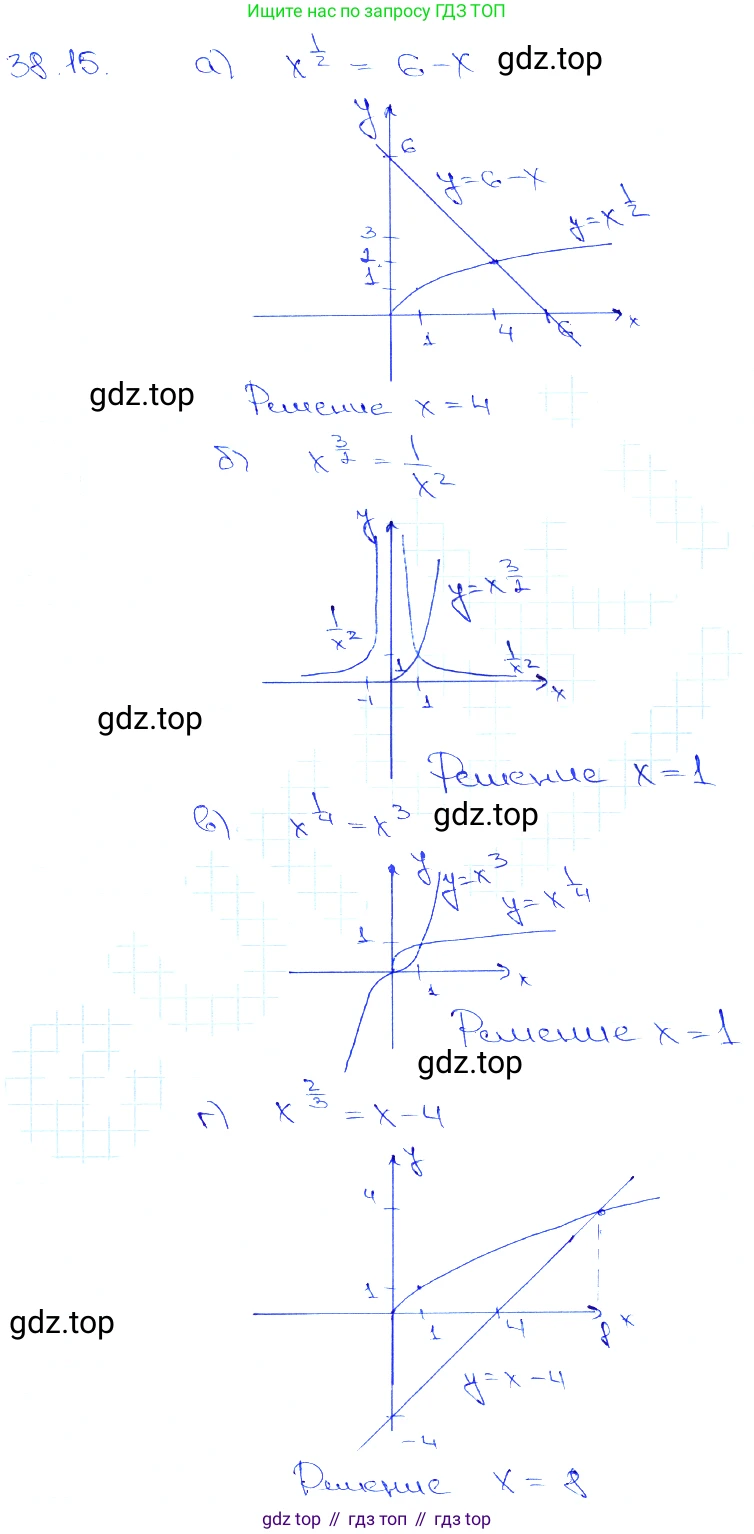 Ищите нас по запросу ГДЗ ТОП
38.15. а) x^{1/2} = 6 - x gdz.top
y
6
y = 6 - x
y = x^{1/2}
3
2
1
1 4 6 x
gdz.top
Решение x = 4
б) x^{3/2} = 1/x^2
y
y = x^{3/2}
1/x^2
1
1/x^2
-1 1 x
gdz.top
Решение x = 1
в) x^{1/4} = x^3 gdz.top
y
y = x^3
y = x^{1/4}
1
1 x
Решение x = 1
gdz.top
г) x^{2/3} = x - 4
y
4
1
1 4 8 x
gdz.top
y = x - 4
-4
Решение x = 8
gdz.top // гдз топ // gdz top